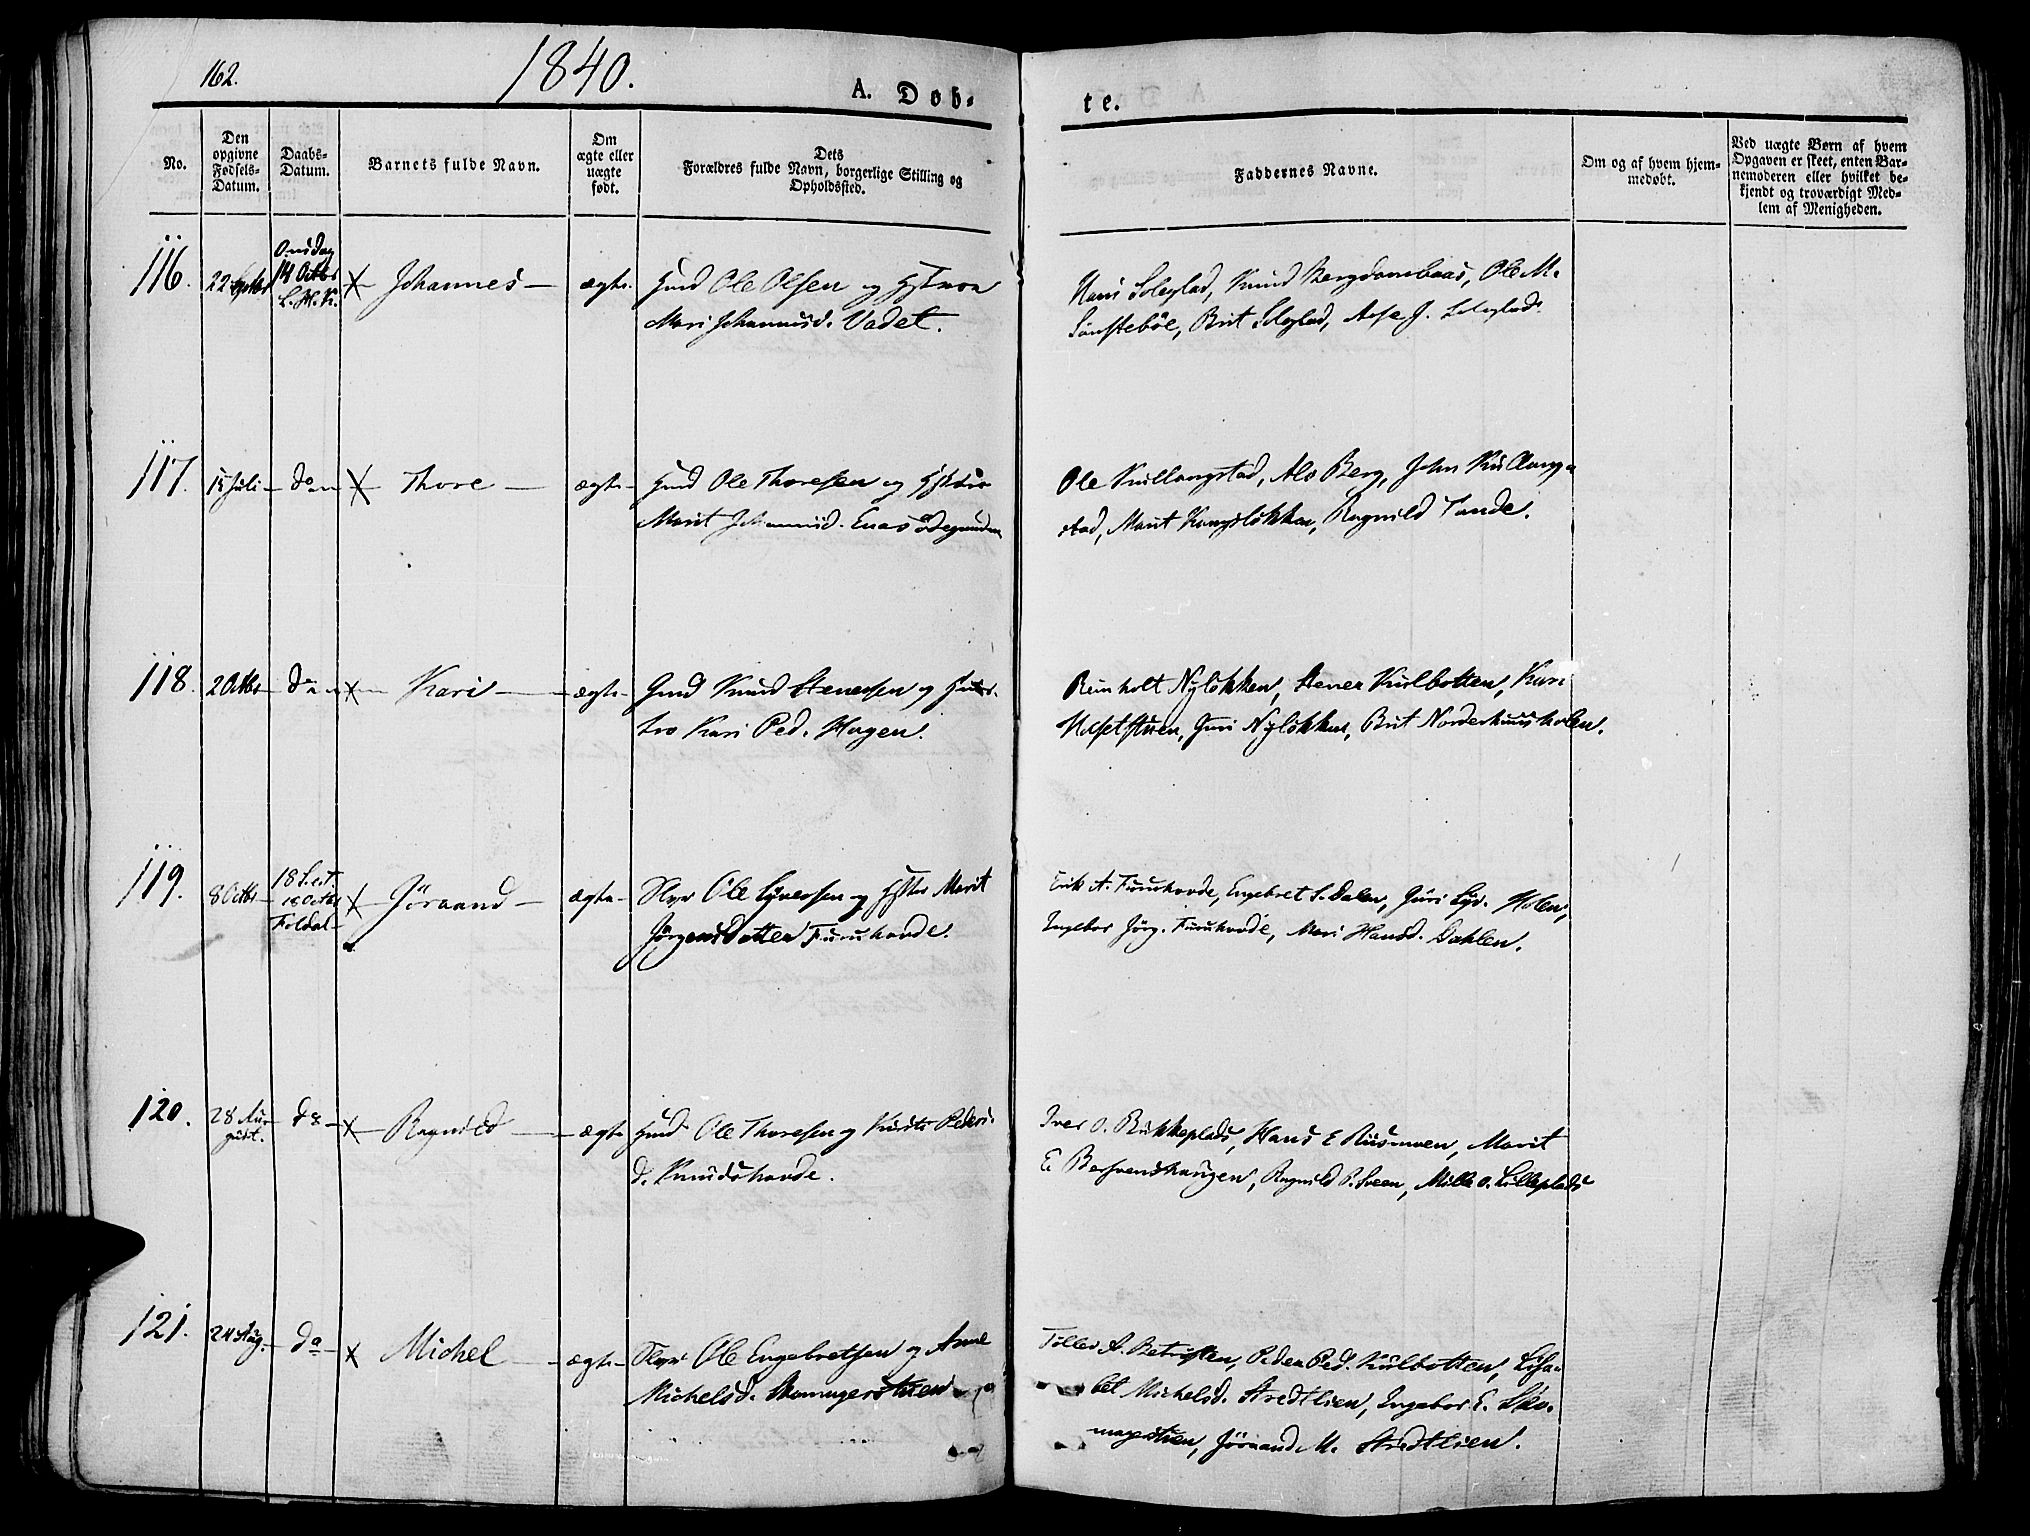 162.
1840.
A. Døb-
te.
No.
Den opgivne Fødsels-Datum.
Daabs-Datum.
Barnets fulde Navn.
Om ægte eller uægte født.
Dets Forældres fulde Navn, borgerlige Stilling og Opholdssted.
Faddernes Navne.
Om og af hvem hjem-medøbt.
Ved uægte Børn af hvem Opgaven er skeet, enten Bar-nemoderen eller hvilket be-kjendt og troværdigt Med-lem af Menigheden.
116. 22 Septbr Onsdag 14 Octbr L. H. K. Johannes ægte Gmd Ole Olsen og
Mari Johannesd. Vadet.
Hans Soleglad, Knud Bergdomsbaas, Ole M.
Sønstebøe, Brit Soleglad, J. Soleglad.
117. 15 Juli do Thore ægte Hmd Ole Thoresen og
Marit Johannesd. Ødegaarden
Ole Kullangstad, Berg, John Kullang-
stad, Marit Kongsløkken, Ragnild Tande.
118. 2 Octbr do Kari ægte Gmd Knud Stenersen og Hus-
tro Kari Ped. Hagen.
Reinholt Nyløkken, Stener Kulbotten, Kari
Guri Nyløkken, Brit Norderhuusholen.
119. 8 Octbr 18 S. e. t. 18 Octbr Foldal Jöraand ægte Slyr Ole Syversen og Marit
Jörgensdatter Furuhovde.
Erik A. Furuhovde, Engebret S. Dalen, Guri Syv. Holen,
Ingebor Jörg. Furuhovde, Mari Hansd. Dahlen.
120. 28 August. do Ragnild ægte Hmd Ole Thoresen og Kirsti Peders-
d. Knudshovde.
Iver O. Bukkeplads, Hans E Ruismoen, Marit
E. Bersvenshaugen, Ragnild P. Sveen, Mille O. Lilleplads
121. 24 Aug. do Michel ægte Slyr Ole Engebretsen og Anne
Michelsd. Skomagerstuen
Tollev A. Peder Ped. Kulbotten, Lisa-
bet Michelsd. Stredtlien, Ingebor E. Sko-
magerstuen, Jöraand M. Stredtlien.